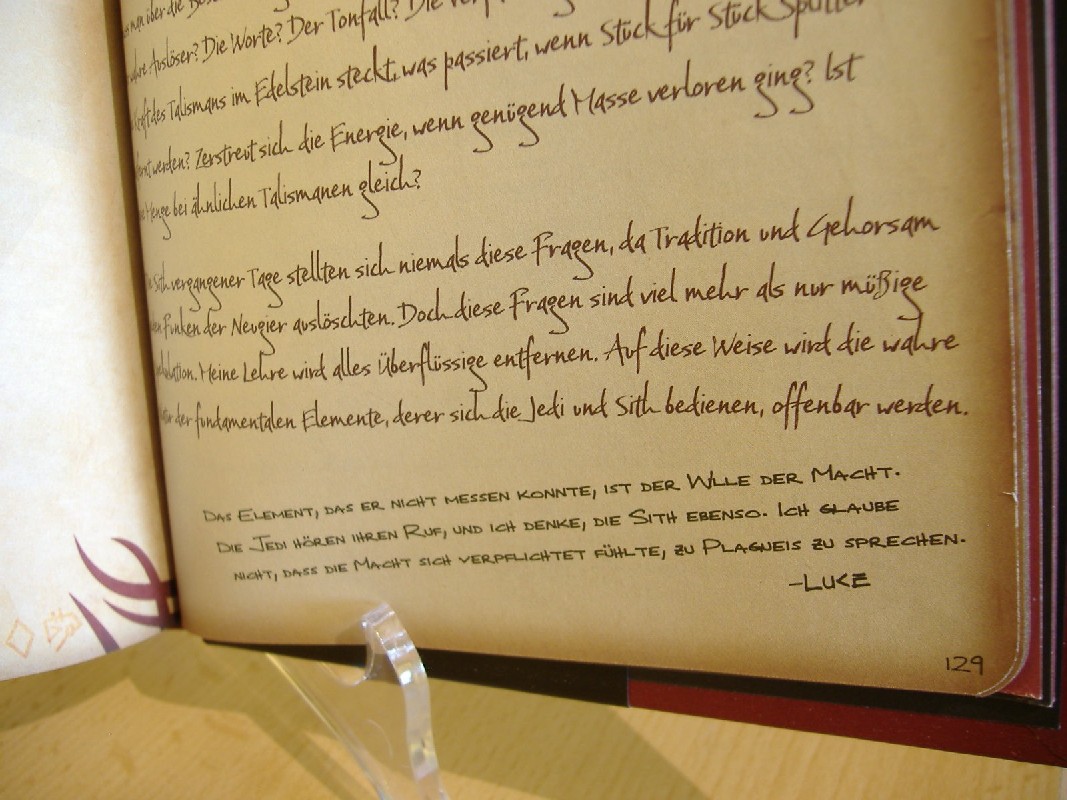 über die
Auslöser? Die Worte? Der Tonfall? Die
des Talismans im Edelstein steckt, was passiert, wenn Stück für Stück Splitter
werden? Zerstreut sich die Energie, wenn genügend Masse verloren ging? Ist
Menge bei ähnlichen Talismanen gleich?
Sith vergangener Tage stellten sich niemals diese Fragen, da Tradition und Gehorsam
Funken der Neugier auslöschten. Doch diese Fragen sind viel mehr als nur müßige
Meine Lehre wird alles Überflüssige entfernen. Auf diese Weise wird die wahre
der fundamentalen Elemente, derer sich die Jedi und Sith bedienen, offenbar werden.
Das Element, das er nicht messen konnte, ist der Wlle der Macht.
Die Jedi hören ihren Ruf, und ich denke, die Sith ebenso. Ich glaube
nicht, dass die Macht sich verpflichtet fühlte, zu Plagueis zu sprechen.
–Luke
129